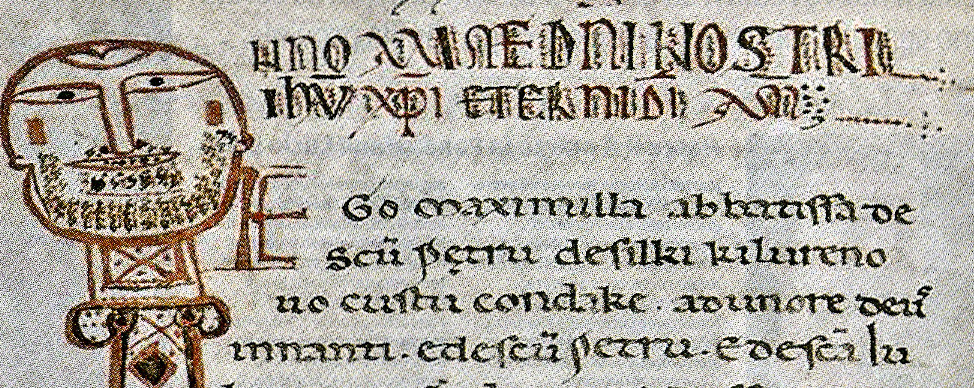 IN NOMINE DNI NOSTRI
IHU XPI ETERNI DI AM
EGo maximilla abbatissa de
scū petru desilki kilureno
uo custu condake. adunore
innanti. edescū petru. edescā lu